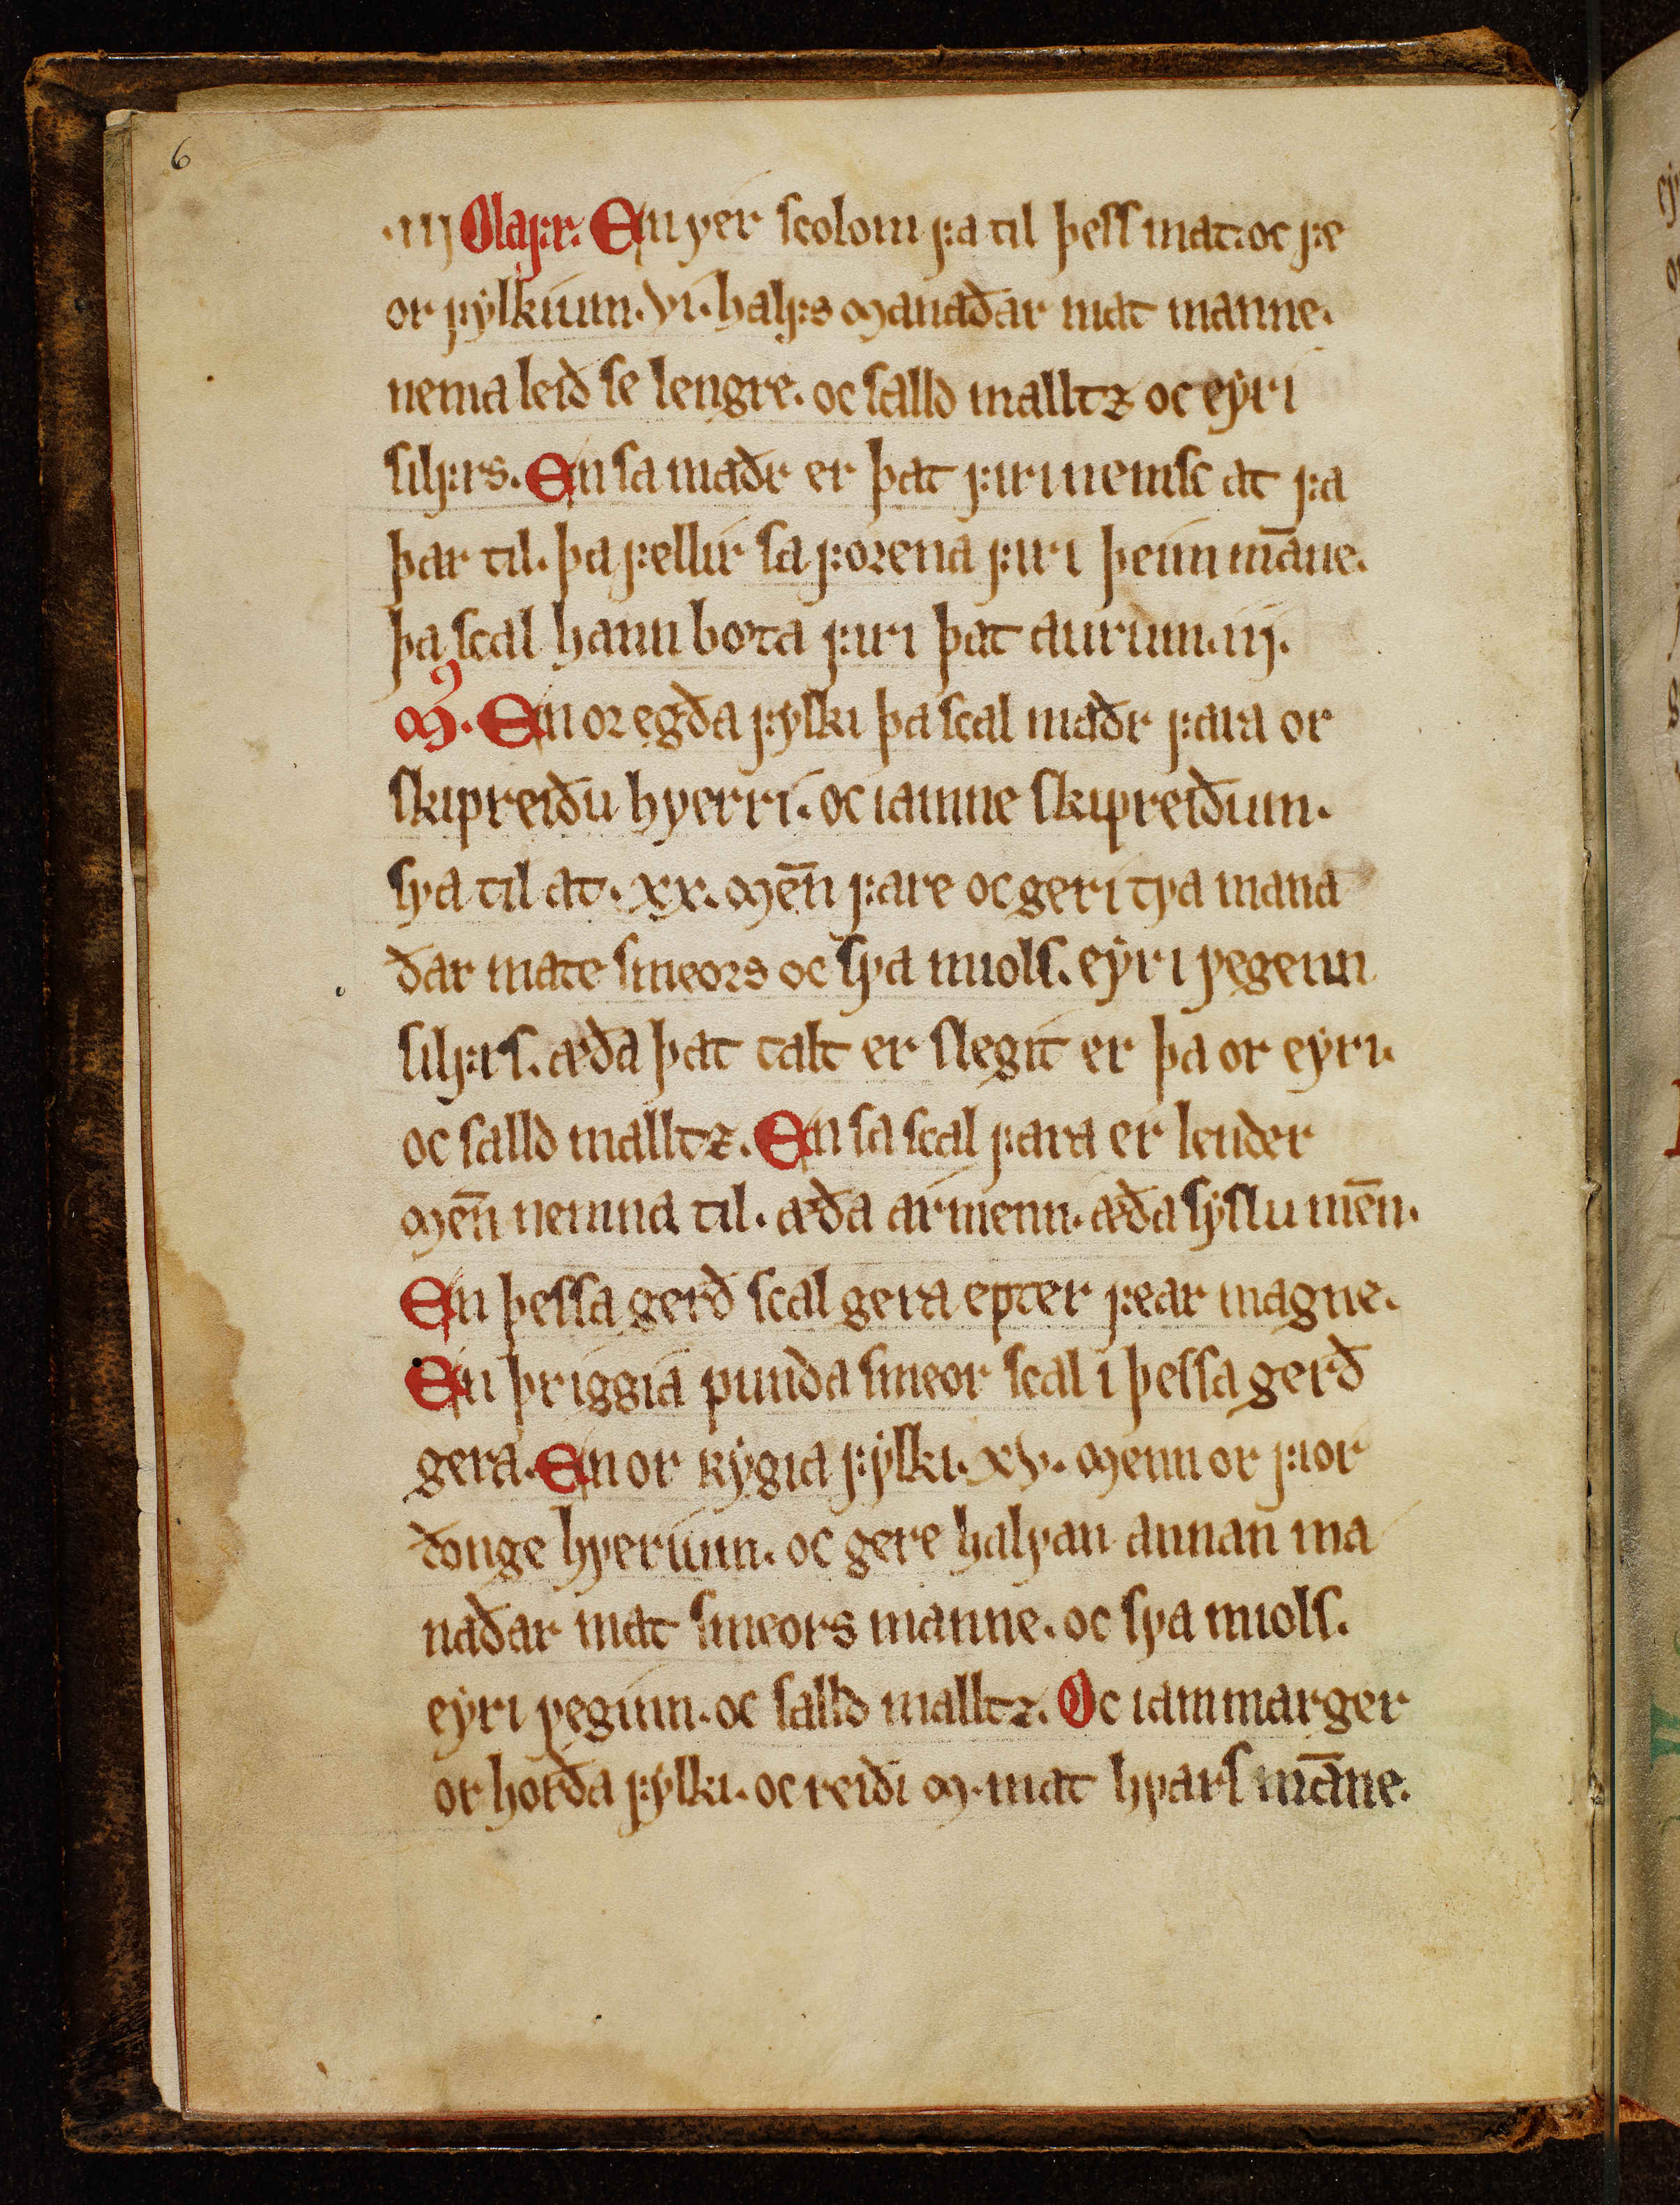 6
.iij Olafr. En ver scolom fa til þess mat. oc fe
or fylkium. vi. halfs manaðar mat manne.
nema leið se lengre. oc salld malltz oc eyri
silfrs. En sa maðr er þat firinemsc at fa
þar til. þa fellir sa forena firi þeim mān̄e.
þa scal hann bota firi þat aurum. iij.
M᷒. En or egða fylki þa scal maðr fara or
skipreiðu hverri. oc iamne skipreiðum.
sva til at. xx. men̄ fare oc geri tva mana
ðar mate smeors oc sva miols. eyri vegenn
silfrs. æða þat talt er slegit er þa or eyri.
oc salld malltz. En sa scal fara er lender
men̄ nemna til. æða armenn. æða syslu men̄.
En þessa gerð scal gera epter fear magne.
En þriggia punda smeor scal i þessa gerð
gera. En or rygia fylki. xv. menn or fior
ðonge hverium. oc gere halvan annan ma
naðar mat smeors manne. oc sva miols.
eyri vegum. oc salld malltz. Oc iammarger
or horða fylki. oc reiði m. mat hvars mān̄e.